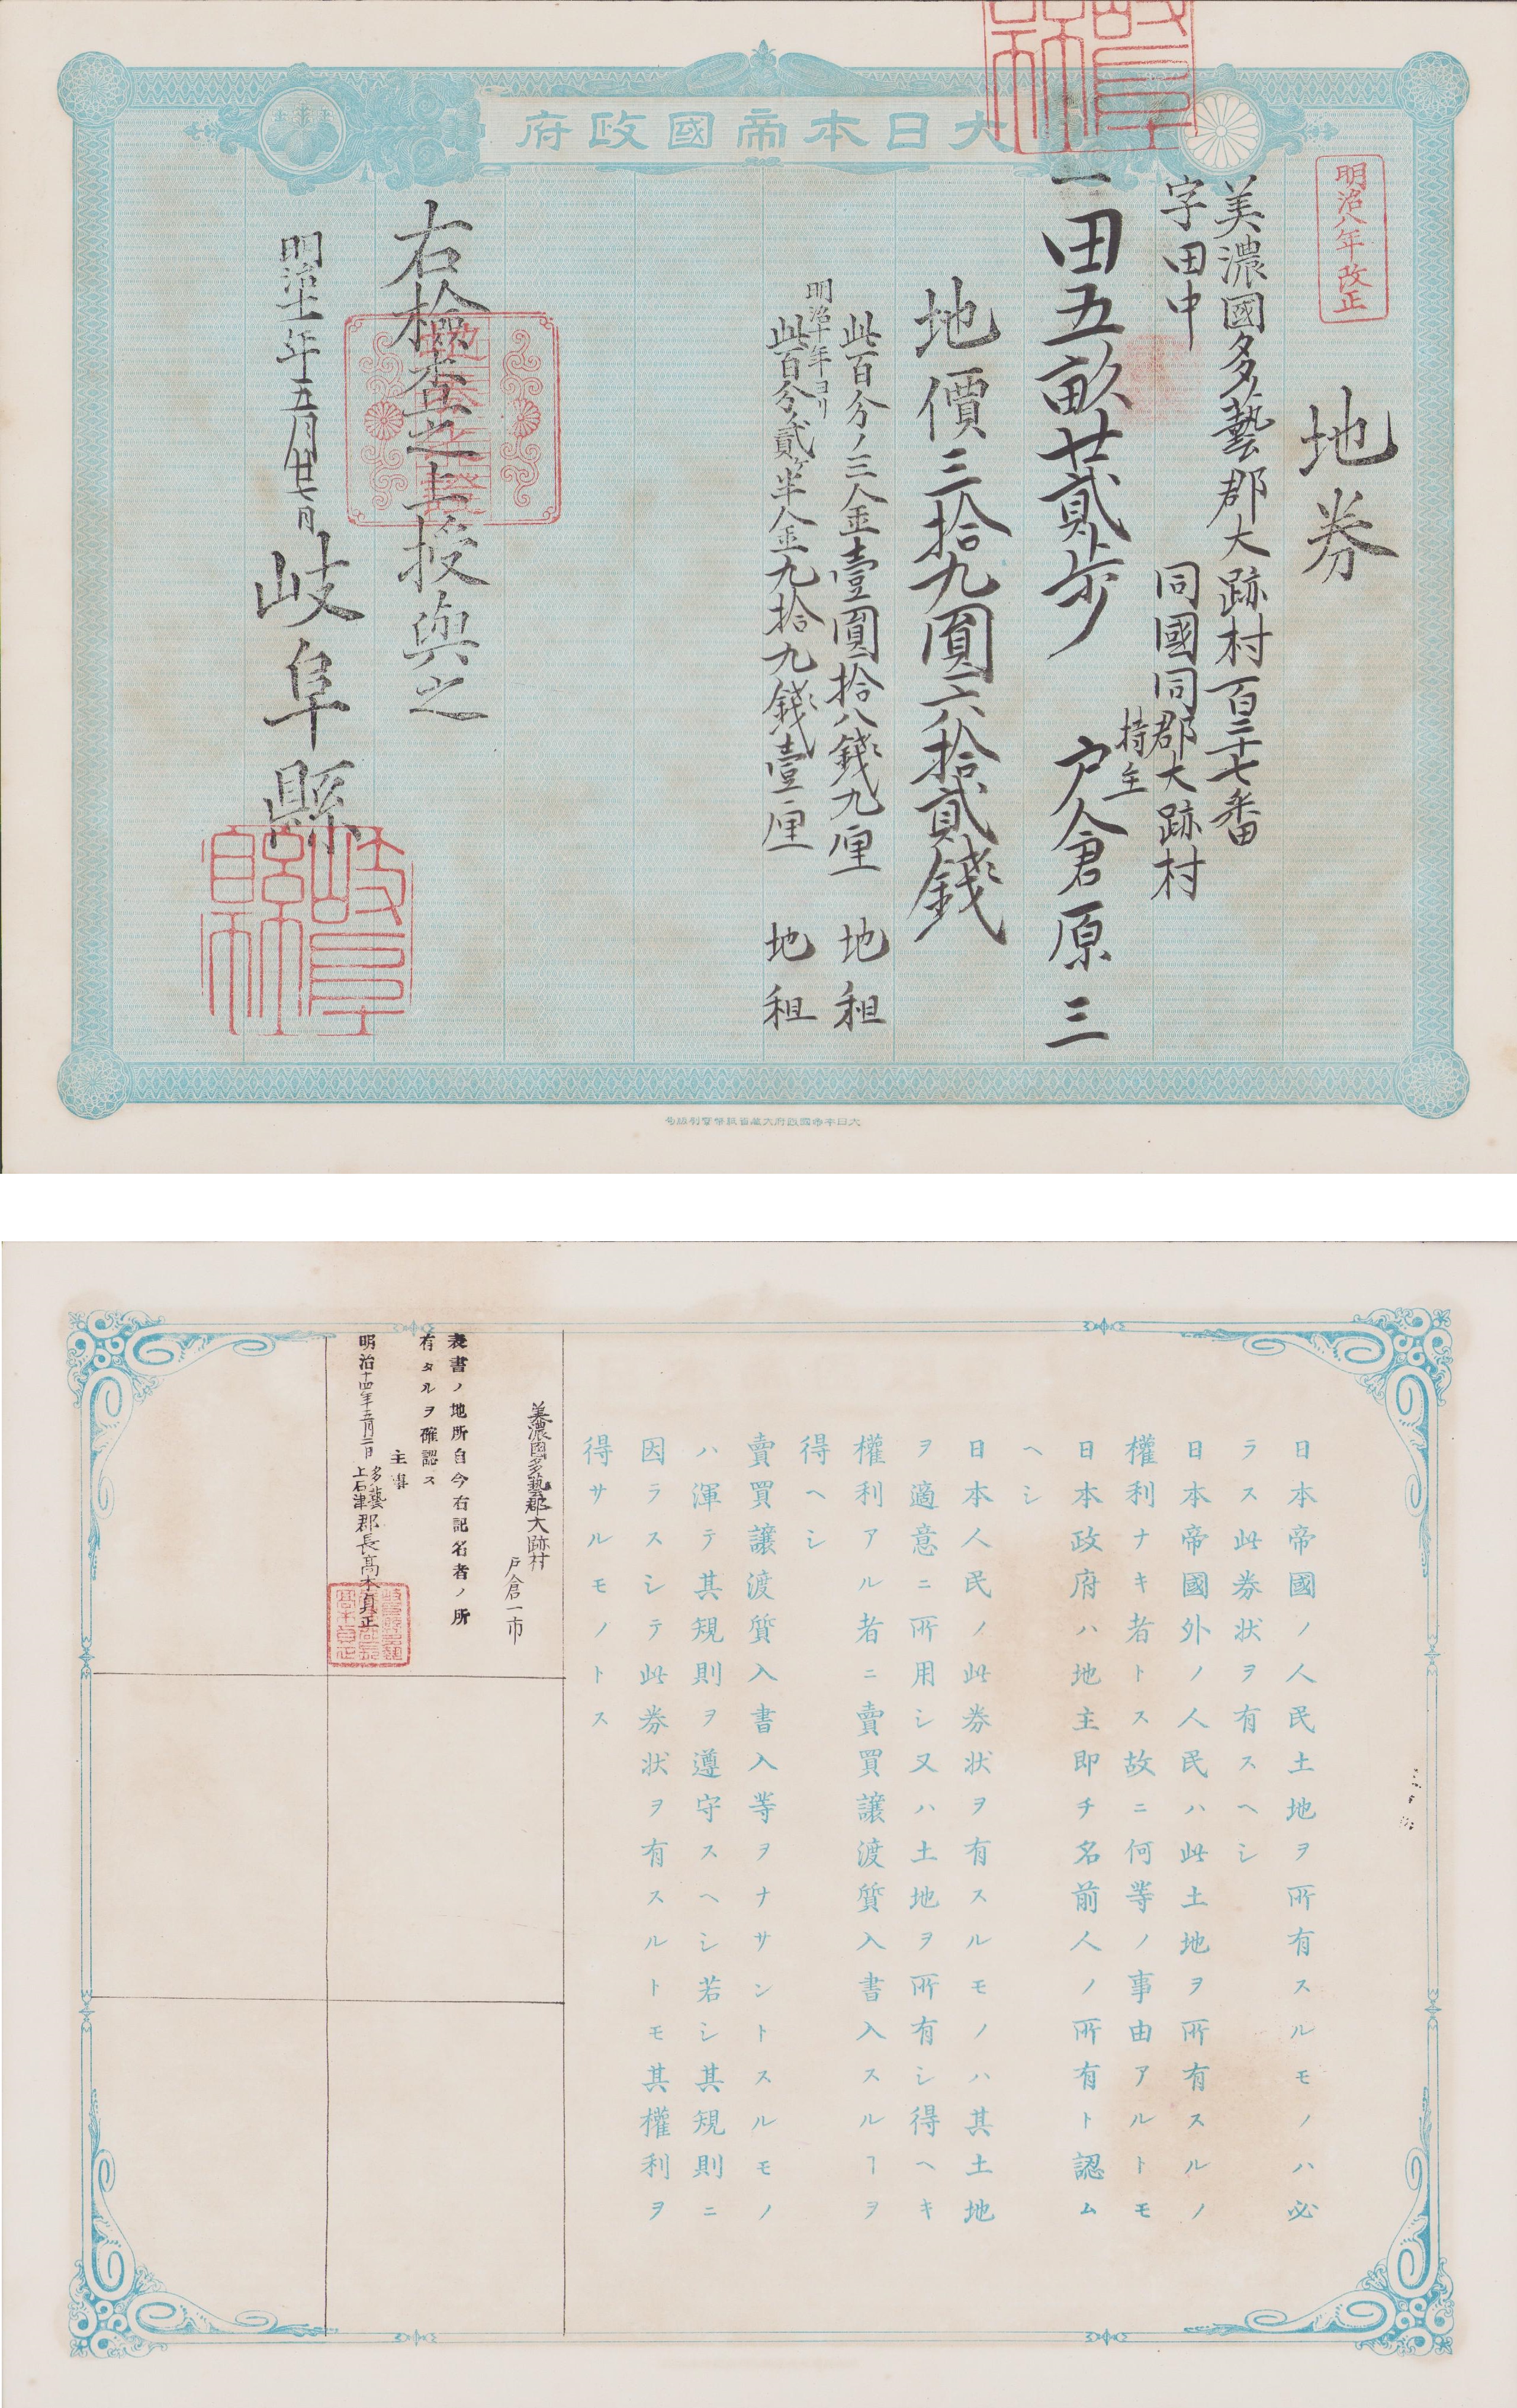 大日本帝國政府
明治八年改正
地券
美濃國多藝郡大跡村百三十七番
字田中
同國同郡大跡村
持主
一田五畝廿貳歩
戸倉原三
地價三拾九圓六拾貳錢
此百分ノ三金壹圓拾八錢九厘
地租
明治十年ヨリ
此百分ノ貳ヶ半金九拾九錢壹厘
地租
右檢査之上授與之
明治十一年五月廿七日
岐阜縣
大日本帝國政府大藏省紙幣寮刷行
日本帝國ノ人民土地ヲ所有スルモノハ必
ラス此券状ヲ有スヘシ
日本帝國外ノ人民ハ此土地ヲ所有スルノ
權利ナキ者トス故ニ何等ノ事由アルトモ
日本政府ハ地主即チ名前人ノ所有ト認ム
ヘシ
日本人民ノ此券状ヲ有スルモノハ其土地
ヲ適意ニ所用シ又ハ土地ヲ所有シ得ヘキ
權利アル者ニ賣買讓渡質入書入スルヿヲ
得ヘシ
賣買讓渡質入書入等ヲナサントスルモノ
ハ渾テ其規則ヲ遵守スヘシ若シ其規則ニ
因ラスシテ此券状ヲ有スルトモ其權利ヲ
得サルモノトス
美濃國多藝郡大跡村
戸倉一市
表書ノ地所自今右記名者ノ所
有タルヲ確認ス
主事
明治十四年三月二日
多藝
上石津
郡長高木貞正